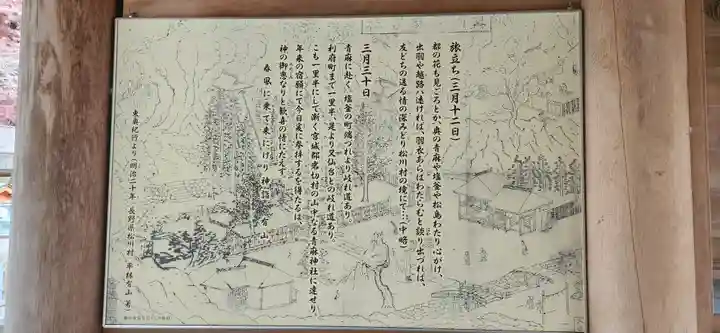 旅立ち(三月十二日)
都の花も見ごろとか、奥の青麻や塩釜や松島わたり心がけ、
出羽や越路八遠ければ、羽衣あらばわたらむと談り出づれば、
友どちの送る情の深みどり松川村の境にて…(中略)
三月三十日
青麻に赴く、塩釜の町端づれより岐れ道あり。
利府町まで一里半、是より又仙台との岐れ道あり。
こも一里半にして漸く宮城郡岩切村の山中なる青麻神社に達せり。
年来の宿願にて今日爰に参拝するを得たるは、
神の御恵なりと歓喜の情にたえず。
春風に乗て来にけり神詣 雪山
東奥紀行より(明治二十年 長野県松川村 平林雪山 著)